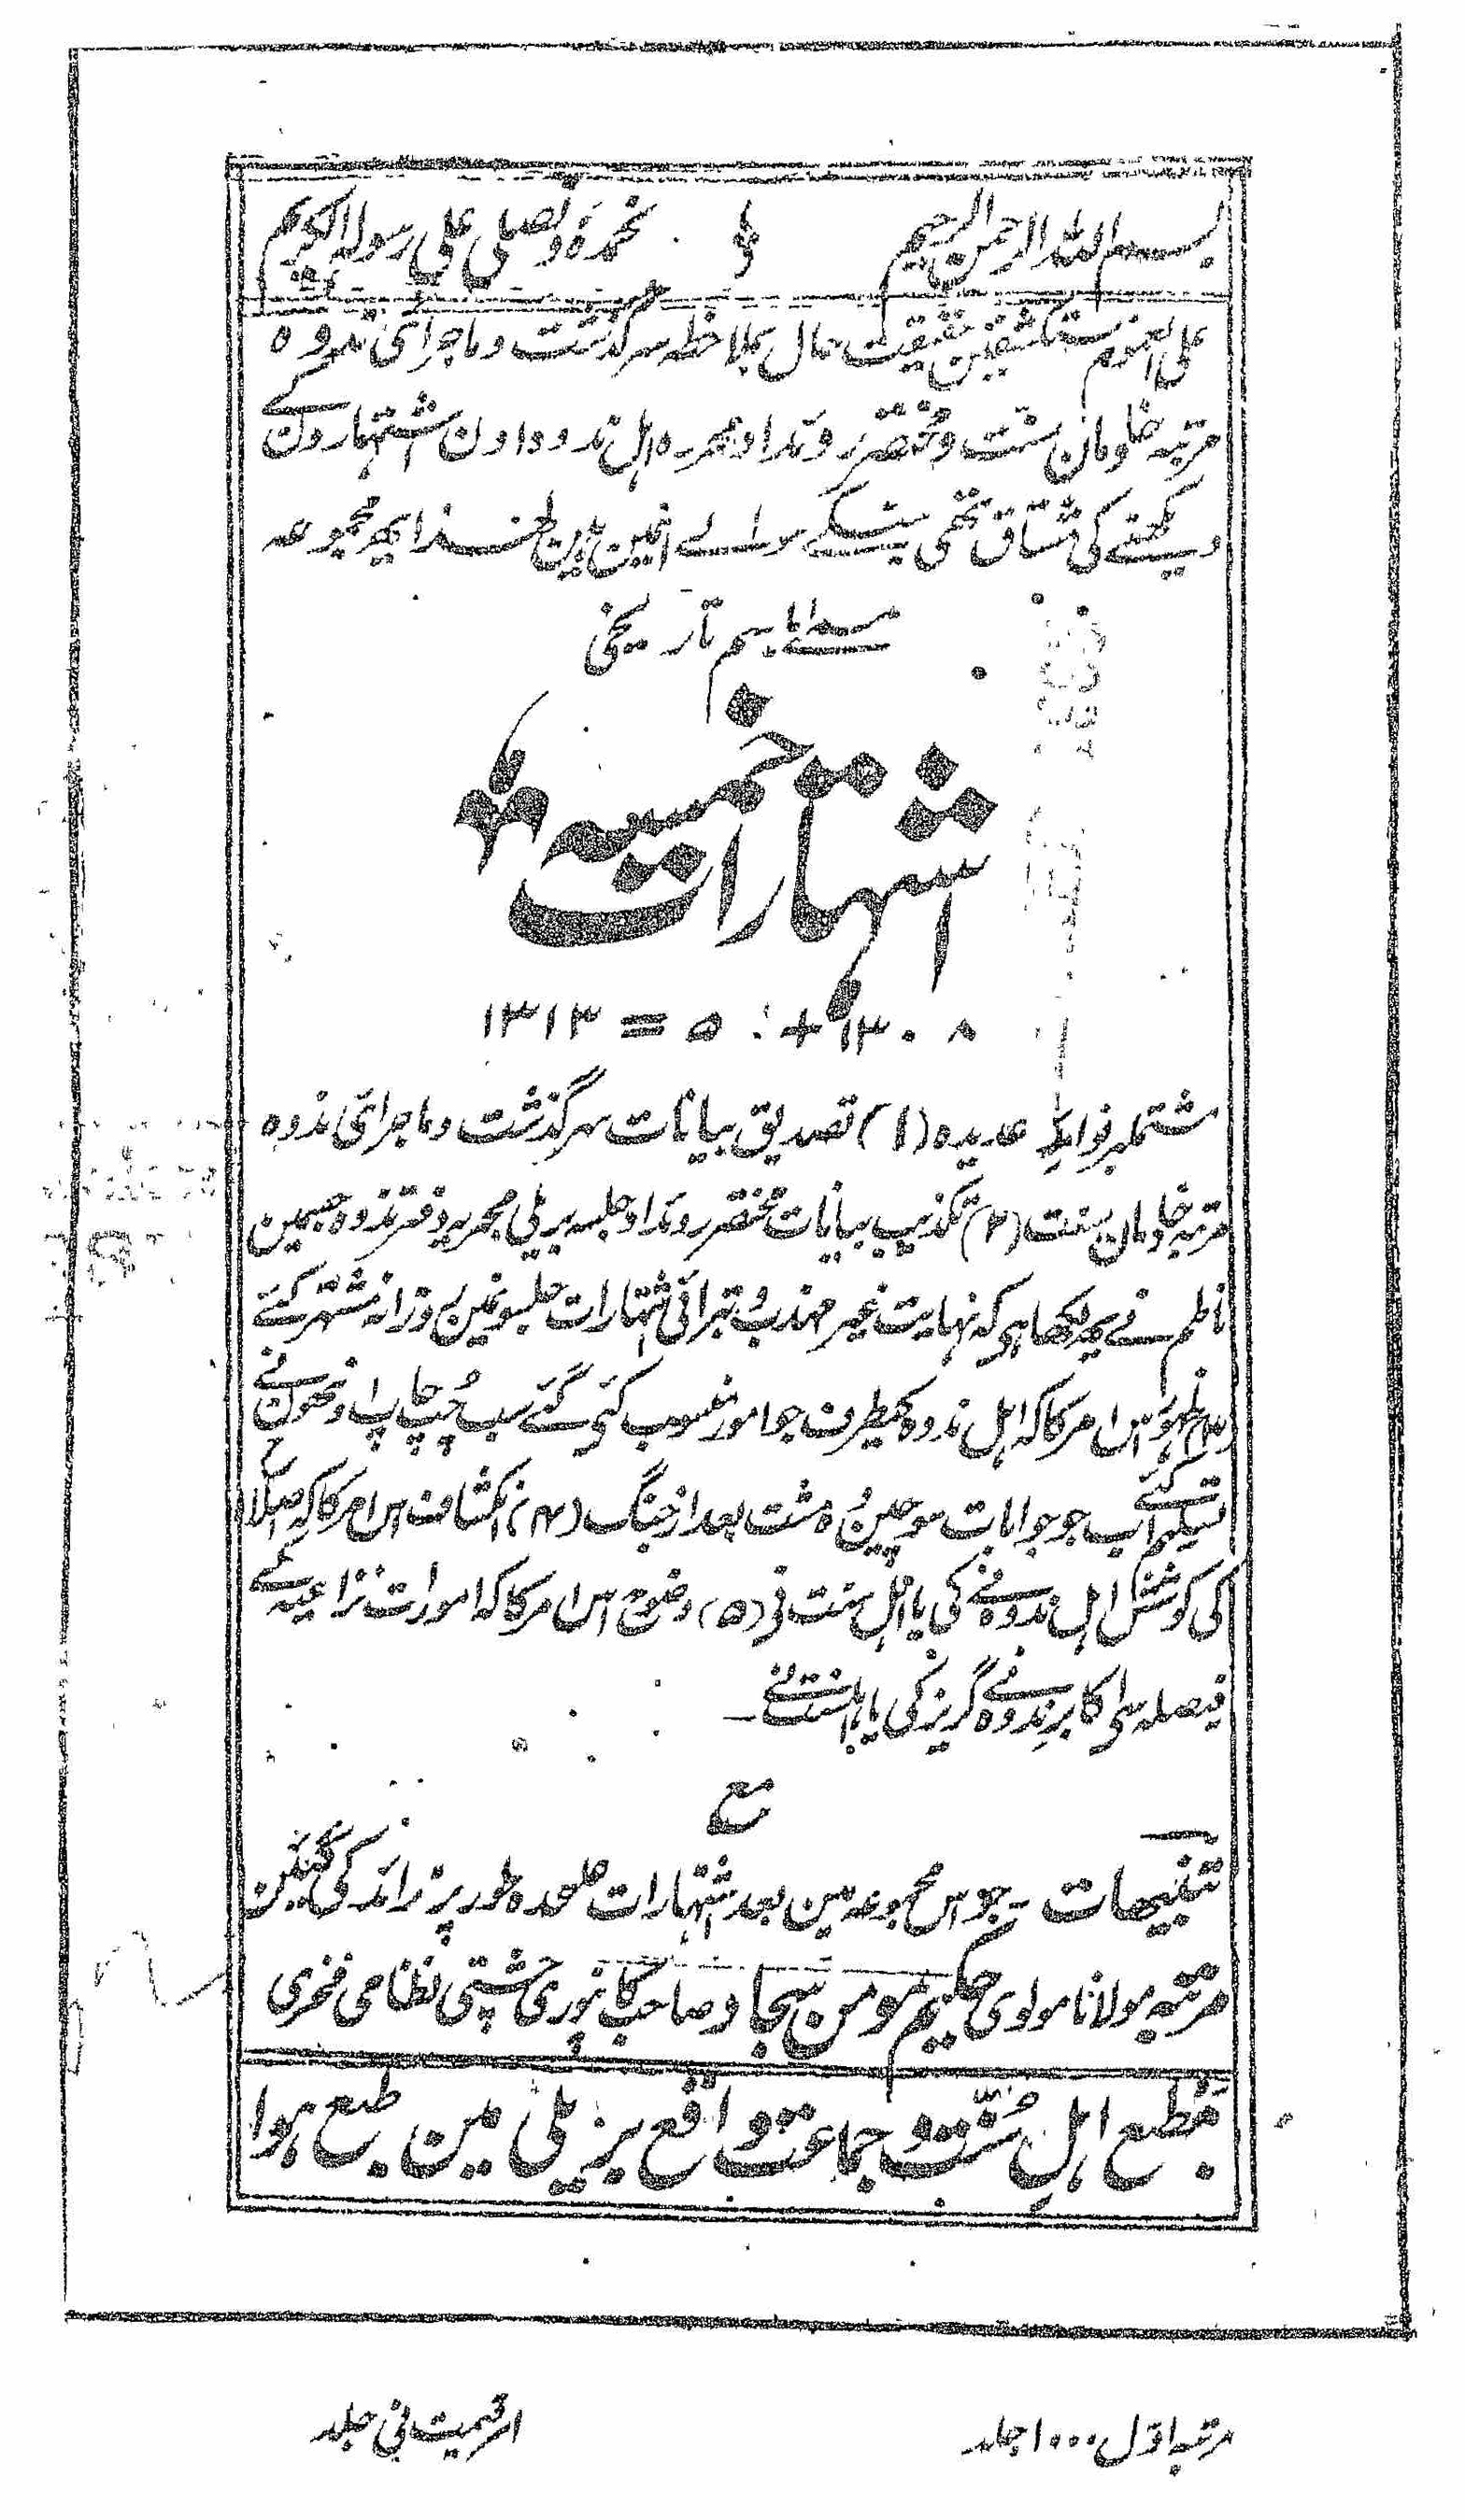 بسم اللہ الرحمن الرحیم نحمدہ ونصلی علی رسولہ الکریم
علی العموم مستکشفین حقیقت حال بملاحظہ سرگذشت وماجرائی ندوہ
مرتبہ خادمان سنت ومختصر روئداد مجریہ اہل ندوہ اون اشتہارون کے
دیکھنے کی مشتاق تھی انہین ناظرین لہذا یہ مجموعہ
مسمے باسم تاریخی
اشتہارات خمسہ
۱۳۰۸ + ۵ = ۱۳۱۳
مشتملبر فوائد عدیدہ (۱) تصدیق بیانات سرگذشت وماجرائی ندوہ
مرتبہ خادمان سنت (۲) تکذیب بیانات مختصر روئداد جلسہ بریلی مجریہ دفتر ندوہ جسمین
ناظم نے یہ لکھا ہی کہ نہایت غیر مہذب و تبرائی اشتہارات جلسونمین روزانہ مشتہر کئے
(۳) ظہور اس امر کا کہ اہل ندوہ کیطرف جو امور منسوب کئی گئے سب چپ چاپ اونھون نے
تسلیم کئے اب جو جوابات سوچین مشت بعد از جنگ (۴) انکشاف اس امر کا کہ اصلاح
کی کوشش اہل ندوہ نے کی یا اہل سنت نی (۵) وضوح اس امر کا کہ امورات نزاعیہ کے
فیصلہ سی اکابر ندوہ نے گریز کی یا اہلسنت نے۔
مع
تنبیہات - جو اس مجموعہ مین بعد اشتہارات علحدہ طور پر زائد کی گئین
مرتبہ مولانا مولوی حکیم مومن سجاد صاحب کانپوری چشتی نظامی فخری
مطبع اہل سنت و جماعت واقع بریلی مین طبع ہوا
مرتبہ اول ۱۰۰۰ جلد
قیمت فی جلد